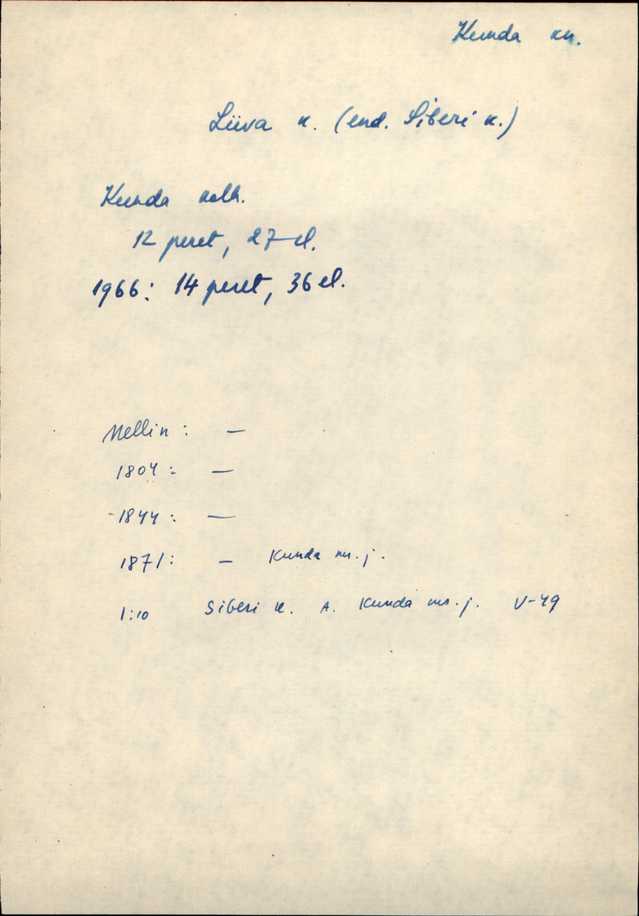 Kunda kn.
Liiva k. (end. Siberi k.)
Kunda valh.
12 peret, 27 el.
1966: 14 peret, 36 el.
Mellin: —
1804: —
1844: —
1871: — Kunda ms. j.
1:10 Siberi k. A. Kunda ms. j. V-49